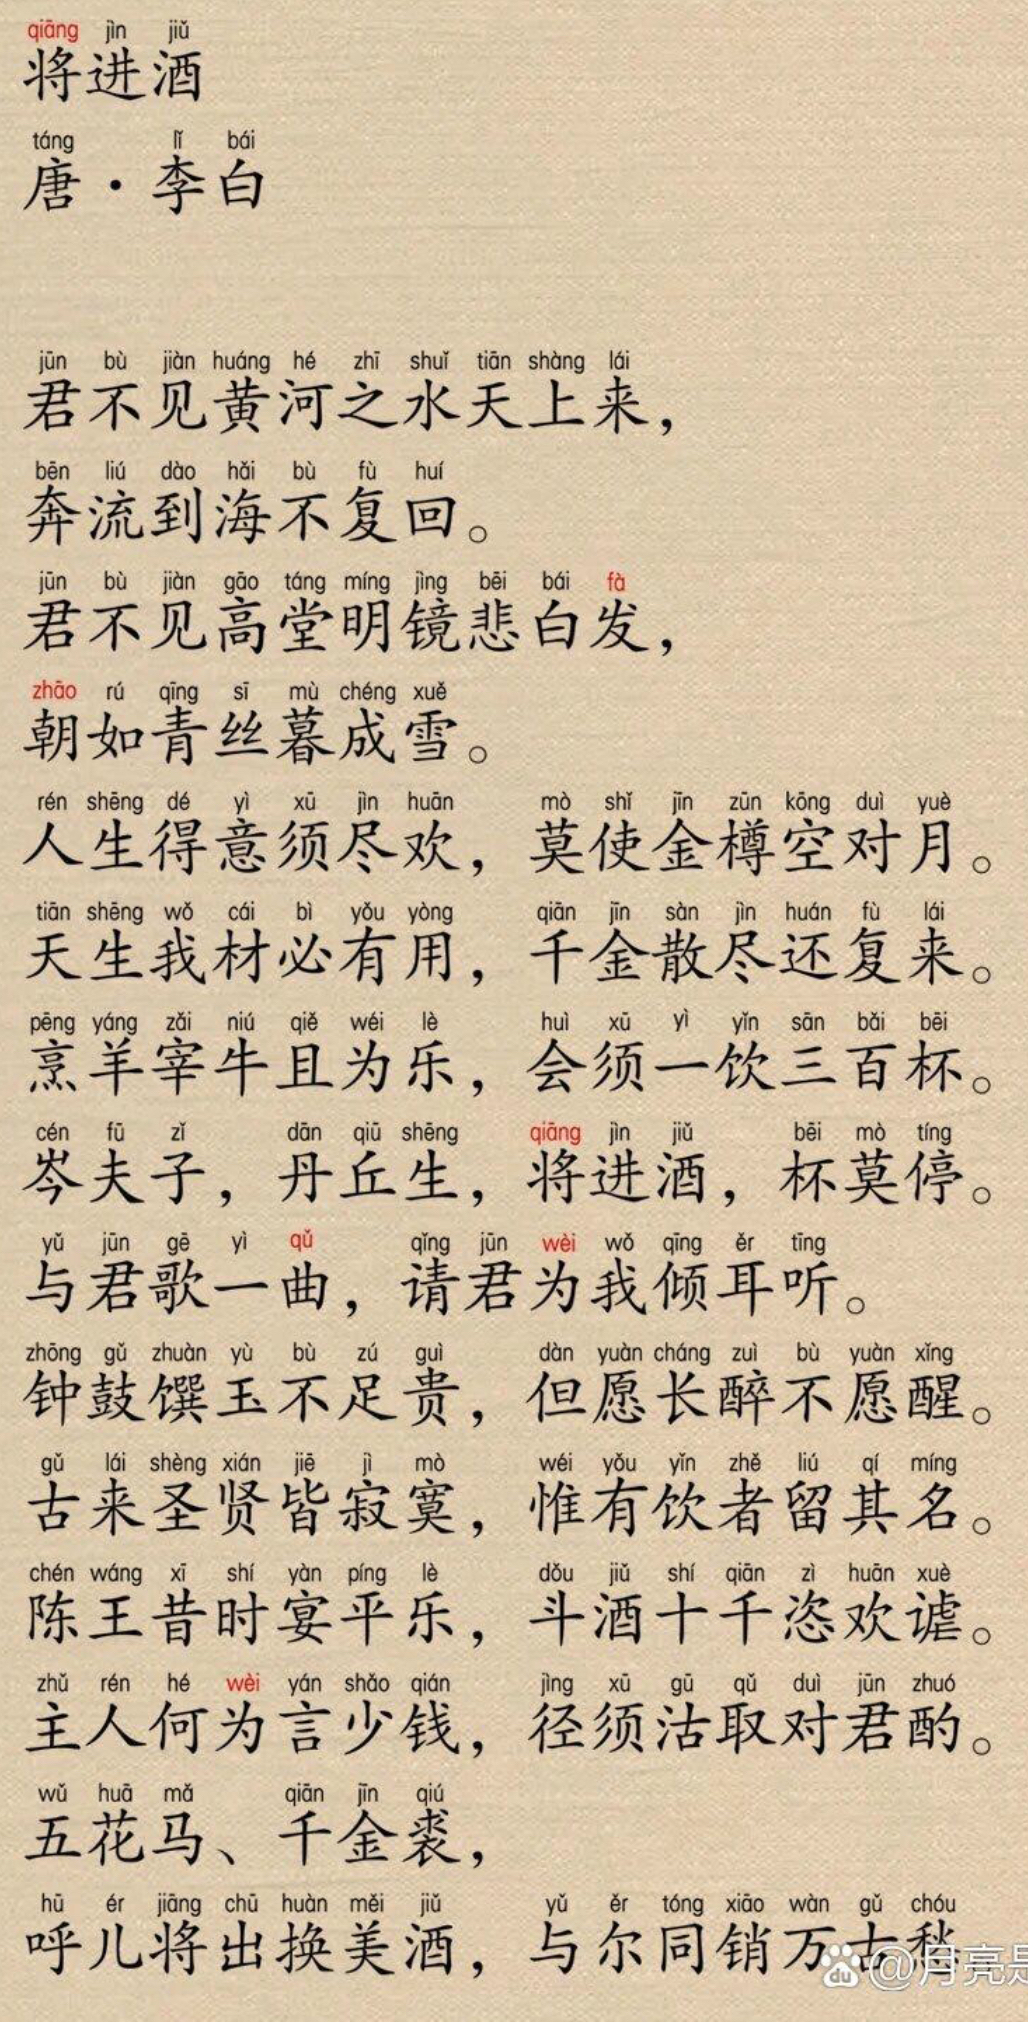 qiāng jìn jiǔ
将进酒
táng lǐ bái
唐·李白
jūn bù jiàn huáng hé zhī shuǐ tiān shàng lái
君不见黄河之水天上来，
bēn liú dào hǎi bù fù huí
奔流到海不复回。
jūn bù jiàn gāo táng míng jìng bēi bái fà
君不见高堂明镜悲白发，
zhāo rú qīng sī mù chéng xuě
朝如青丝暮成雪。
rén shēng dé yì xū jìn huān mò shǐ jīn zūn kōng duì yuè
人生得意须尽欢，莫使金樽空对月。
tiān shēng wǒ cái bì yǒu yòng qiān jīn sàn jìn huán fù lái
天生我材必有用，千金散尽还复来。
pēng yáng zǎi niú qiě wéi lè huì xū yì yǐn sān bǎi bēi
烹羊宰牛且为乐，会须一饮三百杯。
cén fū zǐ dān qiū shēng qiāng jìn jiǔ bēi mò tíng
岑夫子，丹丘生，将进酒，杯莫停。
yǔ jūn gē yì qǔ qǐng jūn wèi wǒ qīng ěr tīng
与君歌一曲，请君为我倾耳听。
zhōng gǔ zhuàn yù bù zú guì dàn yuàn cháng zuì bù yuàn xǐng
钟鼓馔玉不足贵，但愿长醉不愿醒。
gǔ lái shèng xián jiē jì mò wéi yǒu yǐn zhě liú qí míng
古来圣贤皆寂寞，惟有饮者留其名。
chén wáng xī shí yàn píng lè dǒu jiǔ shí qiān zì huān xuè
陈王昔时宴平乐，斗酒十千恣欢谑。
zhǔ rén hé wèi yán shǎo qián jìng xū gū qǔ duì jūn zhuó
主人何为言少钱，径须沽取对君酌。
wǔ huā mǎ qiān jīn qiú
五花马、千金裘，
hū ér jiāng chū huàn měi jiǔ yǔ ěr tóng xiāo wàn gǔ chóu
呼儿将出换美酒，与尔同销万古愁
du @月亮是